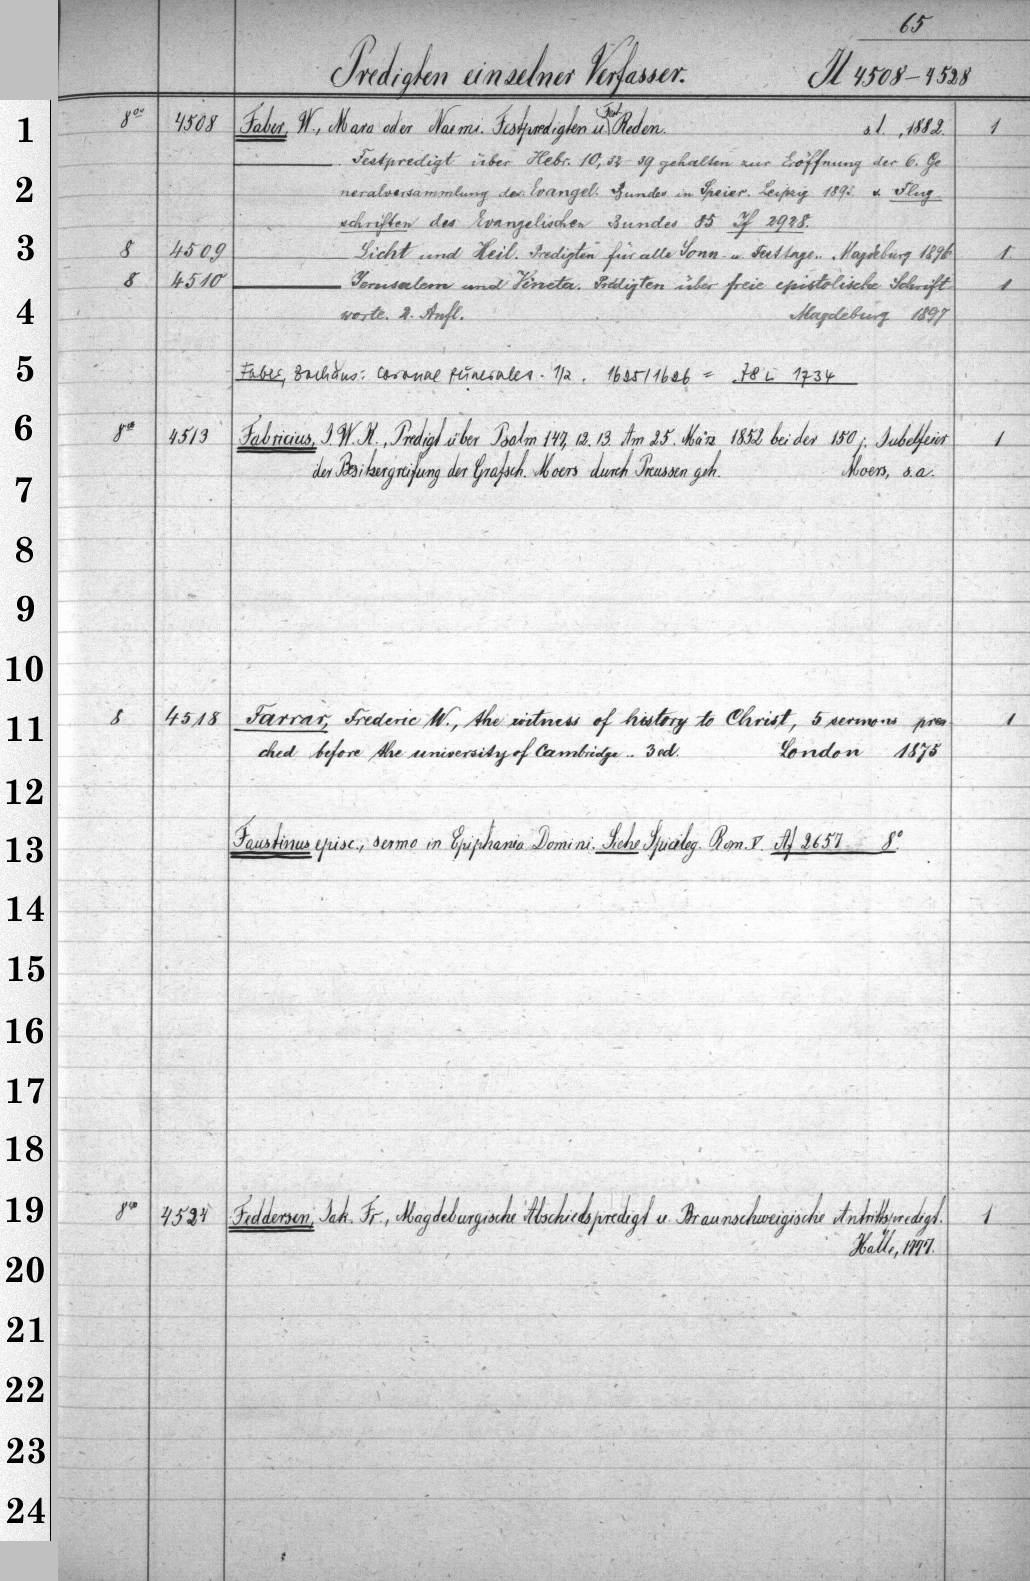 65
Predigten einzelner Verfasser. Il 4508-4528
1 8vo 4508 Faber, W., Mara oder Naemi. Festpredigten u. Fest Reden. s.l., 1882. 1
——— Festpredigt über Hebr. 10, 32-39 gehalten zur Eröffnung der 6. Ge
2 neralversammlung des Evangel. Bundes in Speier. Leipzig 189 Flug
schriften des Evangelischen Bundes 85 If 2928.
3 8 4509 Licht und Heil. Predigten für alle Sonn- u. Festtage.. Magdeburg 1896 1
8 4510 ——— Jerusalem und Vineta. Predigten über freie epistolische Schrift 1
4 worte. 2. Aufl. Magdeburg 1897
5 Faber, Zachäus: Coronae funerales. 1/2. 1625/1626 = 78 L 1734
6 8vo 4513 Fabricius, J. W. K., Predigt über Psalm 147, 12. 13. Am 25. März 1852 bei der 150j. Jubelfeier 1
der Besitzergreifung der Grafsch. Moers durch Preussen geh. Moers, s.a.
7
8
9
10
11 8 4518 Farrar, Frederic W., the witness of history to Christ, 5 sermons prea 1
ched before the university of Cambridge .. 3 ed. London 1875
12
13 Faustinus episc., sermo in Epiphania Domini. Siehe Spicileg. Rom. V. Af 2657 8°.
14
15
16
17
18
19 8vo 4524 Feddersen, Jak. Fr., Magdeburgische Abschiedspredigt u. Braunschweigische Antrittspredigt. 1
Halle, 1777.
20
21
22
23
24